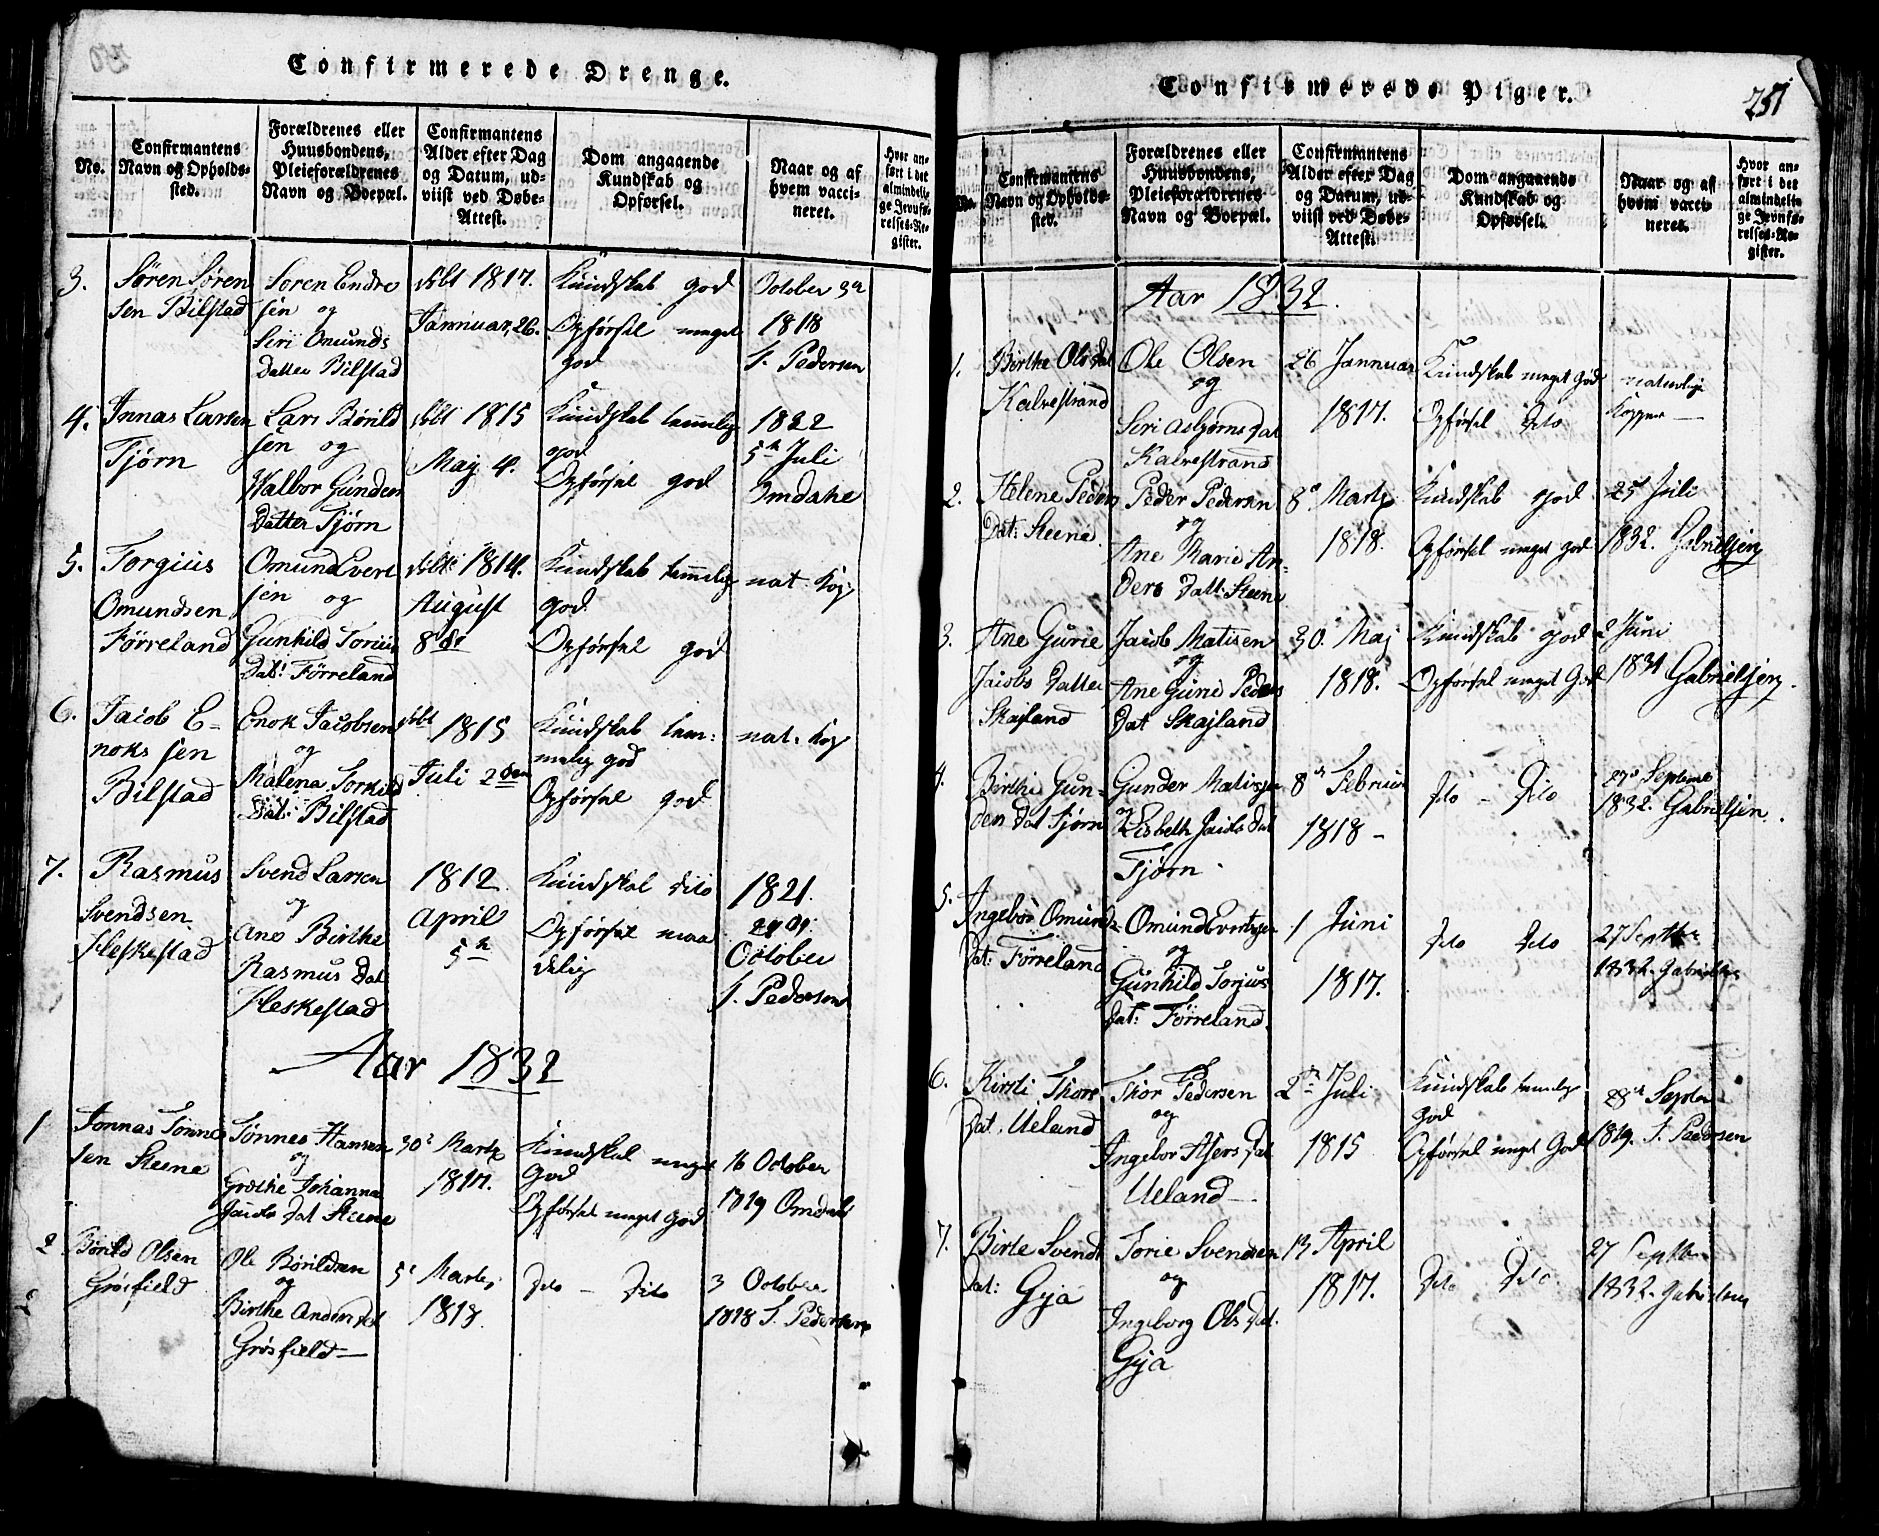 Confirmerede Drenge.
No.
Confirmantens
Navn og Opholds-
sted.
Forældrenes eller
Huusbondens,
Pleieforældrenes
Navn og Boepæl.
Confirmantens
Alder efter Dag
og Datum, ud-
viist ved Døbe-
Attest.
Dom angaaende
Kundskab og
Opførsel.
Naar og af
hvem vacci-
neret.
Hvor an-
ført i det
almindeli-
ge Jevnfø-
relses-Re-
gister.
3.
Søren Søren
sen Bilstad
Soren Endre
sen og
Siri Omunds
Datter Bilstad
døbt 1817.
Januar, 26.
Kundskab god
Opførsel meget
god
October 3
1818
S. Pedersen
4.
Jonas Larsen
Tjørn
Lars Børild
sen og
Walbor Gunden
Datter Tjørn
døbt 1815
Maj 4.
Kundskab temmelig
god
Opførsel god
1822
5te Juli
Omdahl
5.
Torgius
Omundsen
Førreland
Omund Evert
sen og
Gunhild Torius
Dat: Førreland
døbt 1814.
August
8de
Kundskab temmelig
god.
Opførsel god
nat. Kop
6.
Jacob E-
noks sen
Bilstad
Enok Jacobsen
og
Malena Torkild
Dat: Bilstad
døbt 1815
Juli 2den
Kundskab tem:
melig god
Opførsel god
nat. Kop
7.
Rasmus
Svendsen
Heskestad
Svend Larsen
og
Ane Birthe
Rasmus Dat
Heskestad
1812
April
5te
Kundskab dito
Opførsel maa
delig
1821.
October
S. Pedersen
Aar 1832
1
Jonnas Tønnes
sen Steene
Tønnes Hansen
og
Grethe Johanna
Jacobs Dat Steene
30 Marts
1817.
Kundskab meget
God
Opførsel meget God
16 October
1819 Omdahl
2
Børild Olsen
Grøsfield
Ole Børildsen
og
Birthe Anders Dat
Grøsfield
5 Marts
1818.
Dito - Dito
3 October
1818 S. Pedersen
Confirmerede Piger.
251
No.
Confirmantens
Navn og Opholds-
sted.
Forældrenes eller
Huusbondens,
Pleieforældrenes
Navn og Boepæl.
Confirmantens
Alder efter Dag
og Datum, ud-
viist ved Døbe-
Attest.
Dom angaaende
Kundskab og
Opførsel.
Naar og af
hvem vacci-
neret.
Hvor an-
ført i det
almindeli-
ge Jevnfø-
relses-Re-
gister.
Aar 1832.
1.
Birthe Ols Dat
Kalvestrand
Ole Olsen
og
Siri Asbjørns Dat
Kalvestrand
26 Januar
1817.
Kundskab meget god
Opførsel Dito
naturlige
Kopper
2.
Helene Peders
Dat: Steene.
Peder Pedersen
og
Ane Marie An-
ders Datt: Steene
8 Marts
1818.
Kundskab god
Opførsel meget god
25 Juli
1832. Gabrielsen
3.
Ane Gurie
Jacobs Datter
Skajland
Jacob Matisen
og
Ane Gurie Peders
Dat Skajland
30. Maj
1818.
Kundskab god
Opførsel meget God
2 Juni
1831 Gabrielsen.
4.
Birthe Gun-
der Dat Tjørn
Gunder Matisen
og
Lisbeth Jacobs Dat
Tjørn.
8de Februar
1818 -
Dito - Dito
27 September
1832. Gabrielsen.
5.
Ingebor Omunds
Dat: Førreland
Omund Evertsen
og
Gunhild Torjus
Dat: Førreland.
1 Juni
1817.
Dito Dito
27 Septbr
1832. Gabrielsen
6.
Kirsti Thors
Dat. Ueland
Thor Pedersen
og
Ingebor Asers Dat
Ueland
2de Juli
1815
Kundskab temmelig
god
Opførsel meget God
28 Septbr
1819. S. Pedersen
7.
Birte Svends
Dat: Gya
Torie Svendsen
og
Ingeborg Ols Dat.
Gya
13 April
1817.
Dito Dito.
27 Septbr
1832. Gabrielsen